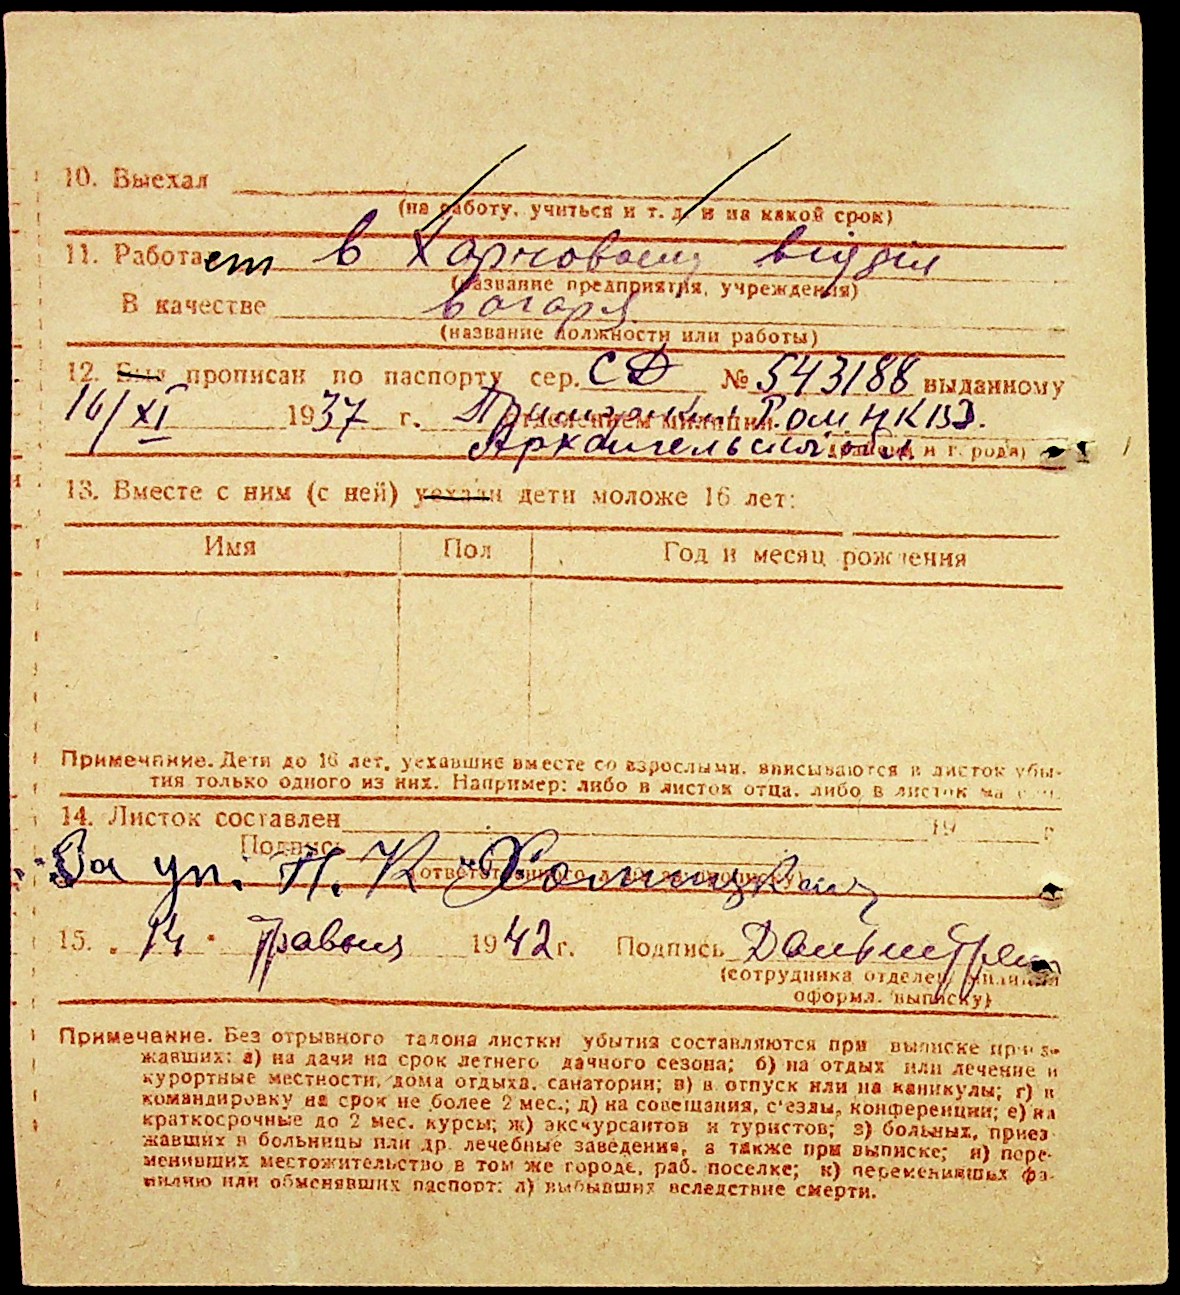 10. Выехал
(на работу, учиться и т. д. и на какой срок)
11. Работает в Харчовому відділі
(название предприятия, учреждения)
В качестве вагаря
(название должности или работы)
12. Был прописан по паспорту сер. СД № 543188 выданному
16/XI 1937 г. отделением милиции Гом НКВД.
Архангельськой обл.
13. Вместе с ним (с ней) уехали дети моложе 16 лет:
Имя Пол Год и месяц рождения
Примечание. Дети до 16 лет, уехавшие вместе со взрослыми, вписываются в листок убы-
тия только одного из них. Например: либо в листок отца, либо в листок
14. Листок составлен 19 г
Подпись
За уп. П. К
15. 14 травня 1942 г. Подпись
(сотрудника отделен. милиции
оформ. выписку)
Примечание. Без отрывного талона листки убытия составляются при выписке приез-
жавших: а) на дачи на срок летнего дачного сезона; б) на отдых или лечение в
курортные местности, дома отдыха, санатории; в) в отпуск или на каникулы; г) в
командировку на срок не более 2 мес.; д) на совещания, с'езды, конференции; е) на
краткосрочные до 2 мес. курсы; ж) экскурсантов и туристов; з) больных, приез
жавших в больницы или др. лечебные заведения, а также при выписке; и) пере-
менивших местожительство в том же городе, раб. поселке; к) переменивших фа-
милию или обменявших паспорт; л) выбывших вследствие смерти.